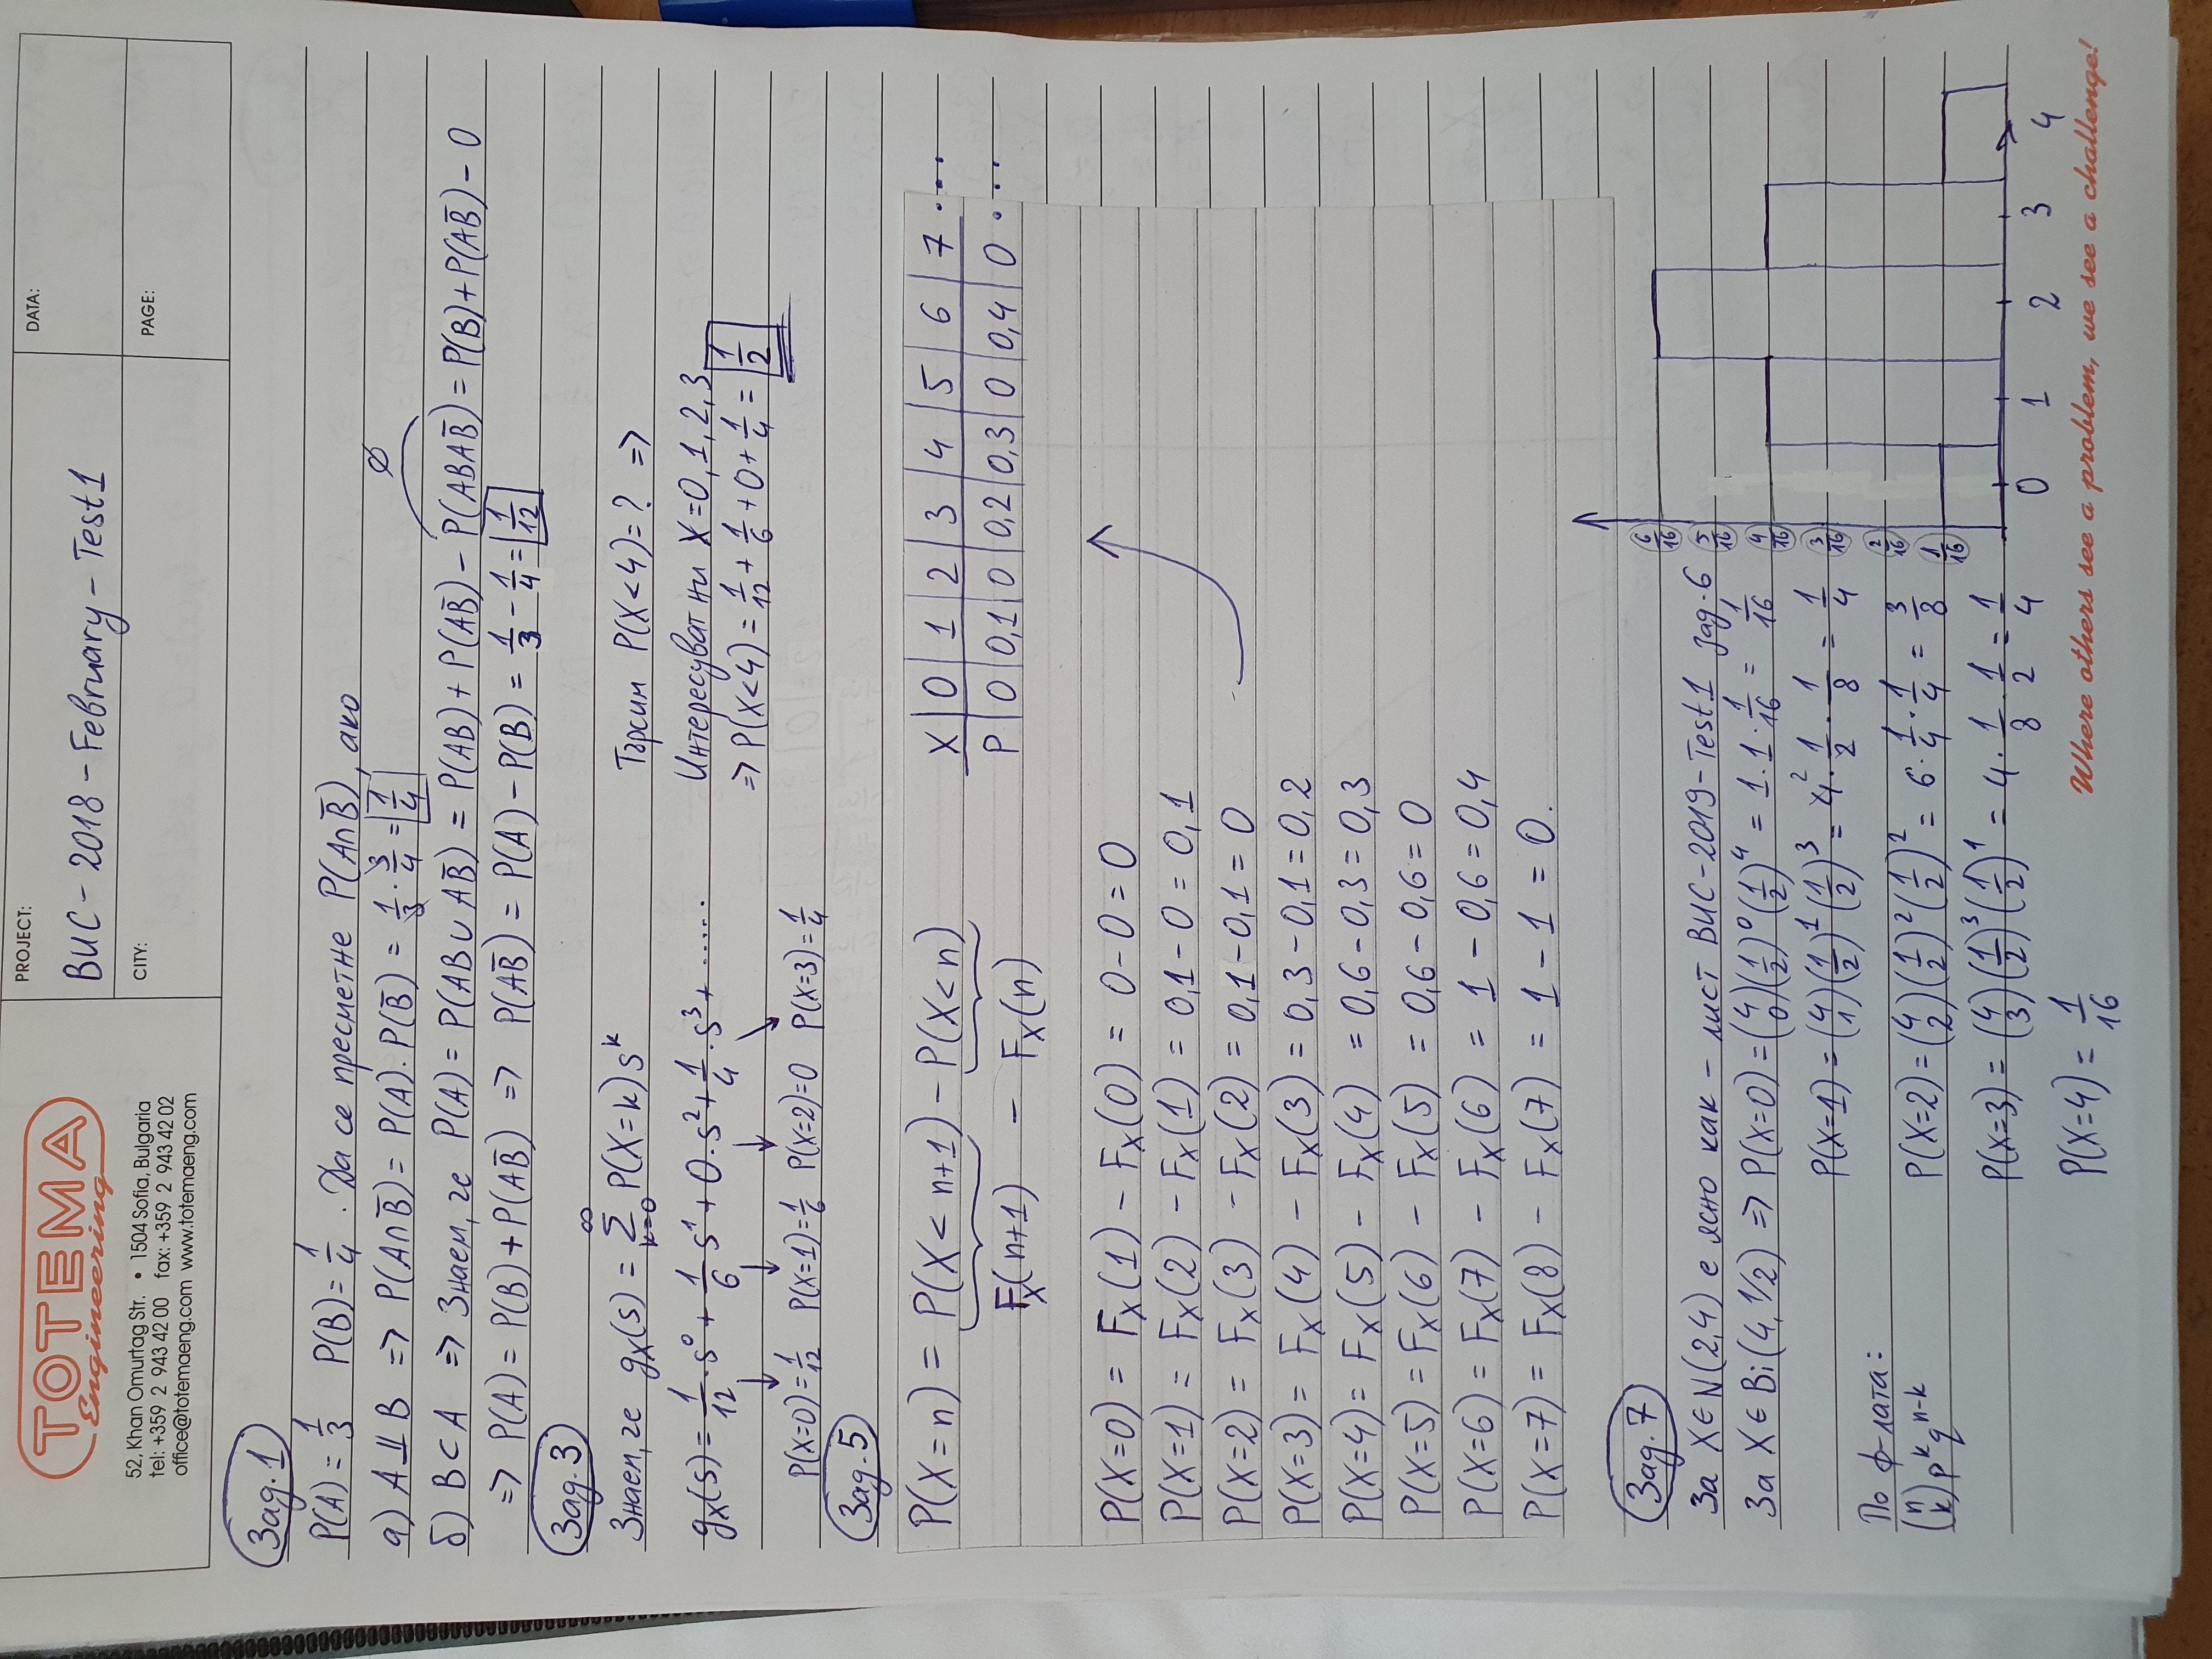 TOTEMA
Engineering
52, Khan Omurtag Str. • 1504 Sofia, Bulgaria
tel: +359 2 943 42 00 fax: +359 2 943 42 02
office@totemaeng.com www.totemaeng.com
PROJECT:
BUC - 2018 - February - Test1
CITY:
DATA:
PAGE:
Зад. 1
P(A) = 1/3 P(B) = 1/4 . Да се пресметне P(A∩B̅), ако
а) A⫫B => P(A∩B̅) = P(A).P(B̅) = 1/3 · 3/4 = 1/4
∅
б) B⊂A => Знаем, че P(A) = P(AB∪AB̅) = P(AB) + P(AB̅) − P(ABAB̅) = P(B) + P(AB̅) − 0
=> P(A) = P(B) + P(AB̅) => P(AB̅) = P(A) − P(B) = 1/3 − 1/4 = 1/12
Зад. 3
Знаем, че gₓ(s) = ∞ Σ k=0 P(X=k) sᵏ
gₓ(s) = 1/12 · s⁰ + 1/6 s¹ + 0·s² + 1/4 · s³ + .....
P(X=0) = 1/12 P(X=1) = 1/6 P(X=2) = 0 P(X=3) = 1/4
Търсим P(X<4) = ? =>
Интересуват ни X = 0, 1, 2, 3
=> P(X<4) = 1/12 + 1/6 + 0 + 1/4 = 1/2
Зад. 5
P(X=n) = P(X < n+1) − P(X<n)
Fₓ(n+1) − Fₓ(n)
X | 0 | 1 | 2 | 3 | 4 | 5 | 6 | 7 ...
P | 0 | 0,1 | 0 | 0,2 | 0,3 | 0 | 0,4 | 0 ...
P(X=0) = Fₓ(1) − Fₓ(0) = 0 − 0 = 0
P(X=1) = Fₓ(2) − Fₓ(1) = 0,1 − 0 = 0,1
P(X=2) = Fₓ(3) − Fₓ(2) = 0,1 − 0,1 = 0
P(X=3) = Fₓ(4) − Fₓ(3) = 0,3 − 0,1 = 0,2
P(X=4) = Fₓ(5) − Fₓ(4) = 0,6 − 0,3 = 0,3
P(X=5) = Fₓ(6) − Fₓ(5) = 0,6 − 0,6 = 0
P(X=6) = Fₓ(7) − Fₓ(6) = 1 − 0,6 = 0,4
P(X=7) = Fₓ(8) − Fₓ(7) = 1 − 1 = 0.
Зад. 7
За X∈N(2,4) е ясно как – лист BUC-2019-Test1 зад. 6
За X∈Bi(4, 1/2) => P(X=0) = (4 0)(1/2)⁰(1/2)⁴ = 1.1·1/16 = 1/16
P(X=1) = (4 1)(1/2)¹(1/2)³ = 4² · 1/2 · 1/8 = 1/4
По ф-лата:
(n k) pᵏ qⁿ⁻ᵏ
P(X=2) = (4 2)(1/2)²(1/2)² = 6 · 1/4 · 1/4 = 3/8
P(X=3) = (4 3)(1/2)³(1/2)¹ = 4 · 1/8 · 1/2 = 1/4
P(X=4) = 1/16
6/16
5/16
4/16
3/16
2/16
1/16
0 1 2 3 4
Where others see a problem, we see a challenge!